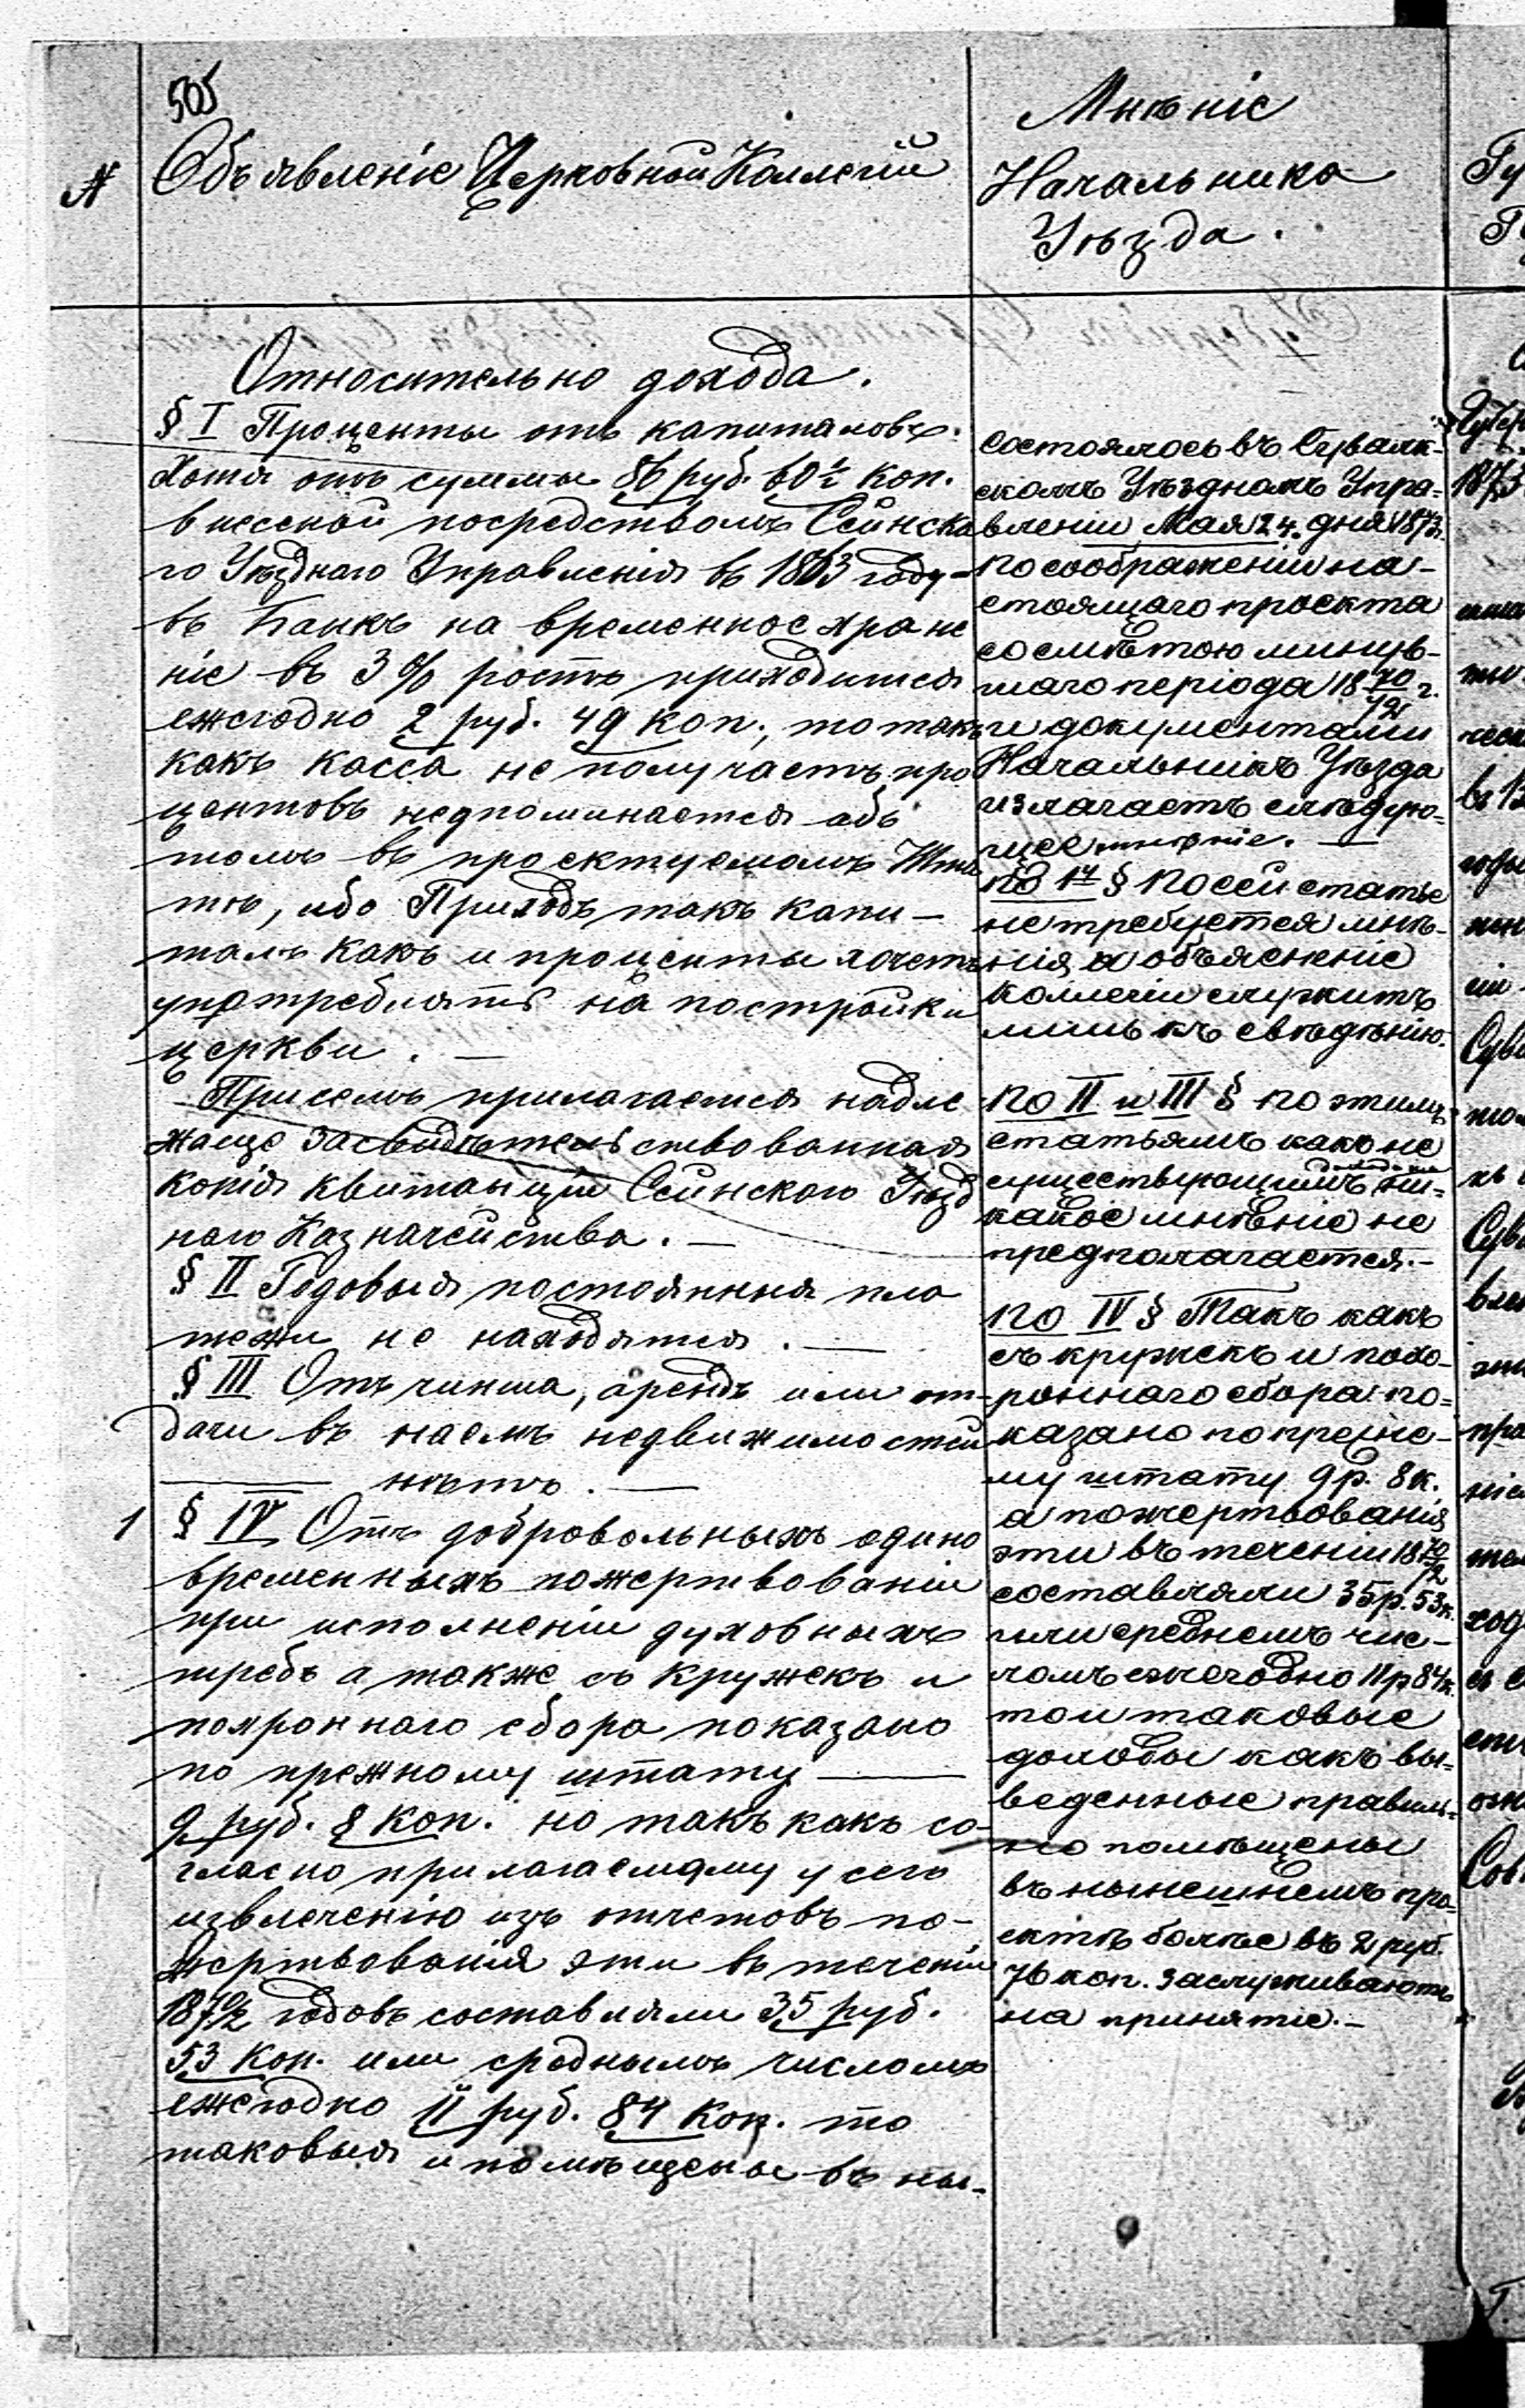 505
№
Объявленіе Церковной Коллегіи
Относительно дохода.
§ I Проценты отъ капиталовъ.
Хотя отъ суммы 86 руб. 60½ коп.
внесеной посредствомъ Сейнска
го Уѣзднаго Управленія въ 1863 году
въ Банкъ на временное хране
ніе въ 3% ростъ приходится
ежегодно 2 руб. 49 коп., то такъ
какъ касса не получаетъ про
центовъ неупоминается объ
томъ въ проектуемомъ Шта
тѣ, ибо Приходъ такъ капи-
талъ какъ и проценты хочетъ
употреблять на постройки
церкви. —
Присемъ прилагается надле
жаще засвидѣтельствованная
копія квитанціи Сейнского Уѣзд
наго Казначейства. —
§ II Годовыя постоянныя пла
тежи не находятся. —
§ III Отъ чинша, арендъ или от-
дачи въ наемъ недвижимостей
— нѣтъ. —
1 § IV Отъ добровольныхъ едино
временныхъ пожертвованій
при исполненіи духовныхъ
требъ а также съ кружекъ и
похроннаго сбора показано
по прежному штату —
9 руб. 8 коп. но такъ какъ со-
гласно прилагаемому у сего
извлеченію изъ отчетовъ по-
жертвованія эти въ теченіи
1870/2 годовъ составляли 35 руб.
53 коп. или среднымъ числомъ
ежегодно 11 руб. 84 коп. то
таковыя и помѣщены въ ны-
Мнѣніе
Начальника
Уѣзда.
Состоялось въ Сувалк-
скомъ Уѣздномъ Упра-
вленіи Мая 24. дня 1873 г.
По соображеніи на-
стоящаго проекта
со смѣтою минув-
шаго періода 1870/72 г.
и документами
Начальникъ Уѣзда
излагаетъ слѣдую-
щее мнѣніе. —
По 1й § По сей статье
не требуется мнѣ-
нія а объясненіе
Коллегіи служитъ
лишь къ свѣдѣнію.
По II и III § По этимъ
статьямъ какъ не
существующимъ ни-
какое мнѣніе не
предполагается. —
По IV § Такъ какъ
съ кружекъ и похо-
роннаго сбора по-
казано по прежне-
му штату 9 р. 8 к.
а пожертвованія
эти въ теченіи 1870/2
составляли 35 р. 53 к.
или среднемъ чис-
ломъ ежегодно 11 р 84 к.
то и таковые
доходы какъ вы-
веденные правиль-
но помѣщены
въ нынешнемъ про-
ектѣ болѣе въ 2 руб.
76 коп. заслуживаютъ
на принятіе. —